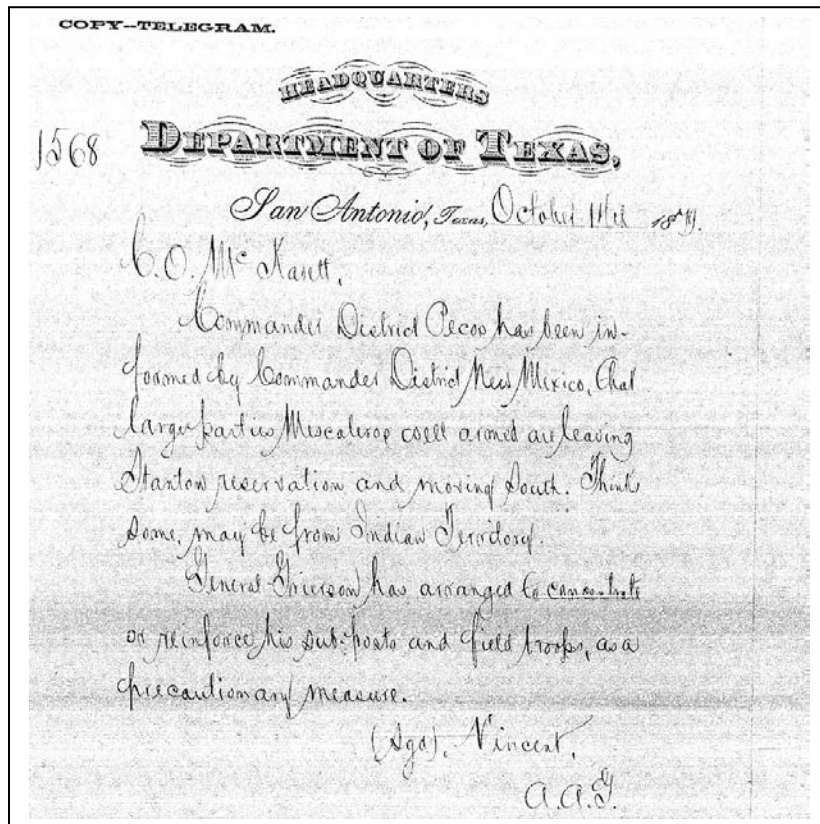 COPY--TELEGRAM.
HEADQUARTERS
1568 DEPARTMENT OF TEXAS,
San Antonio, Texas, October 11th 1879.
C.O. McKavett,
Commander District Pecos has been in-
formed by Commander District New Mexico, that
large parties Mescaleros well armed are leaving
Stanton reservation and moving South. Think
some, may be from Indian Territory.
General Grierson has arranged to concentrate
or reinforce his sub-posts and field troops, as a
precautionary measure.
(Sgd). Vincent,
A.A.G.